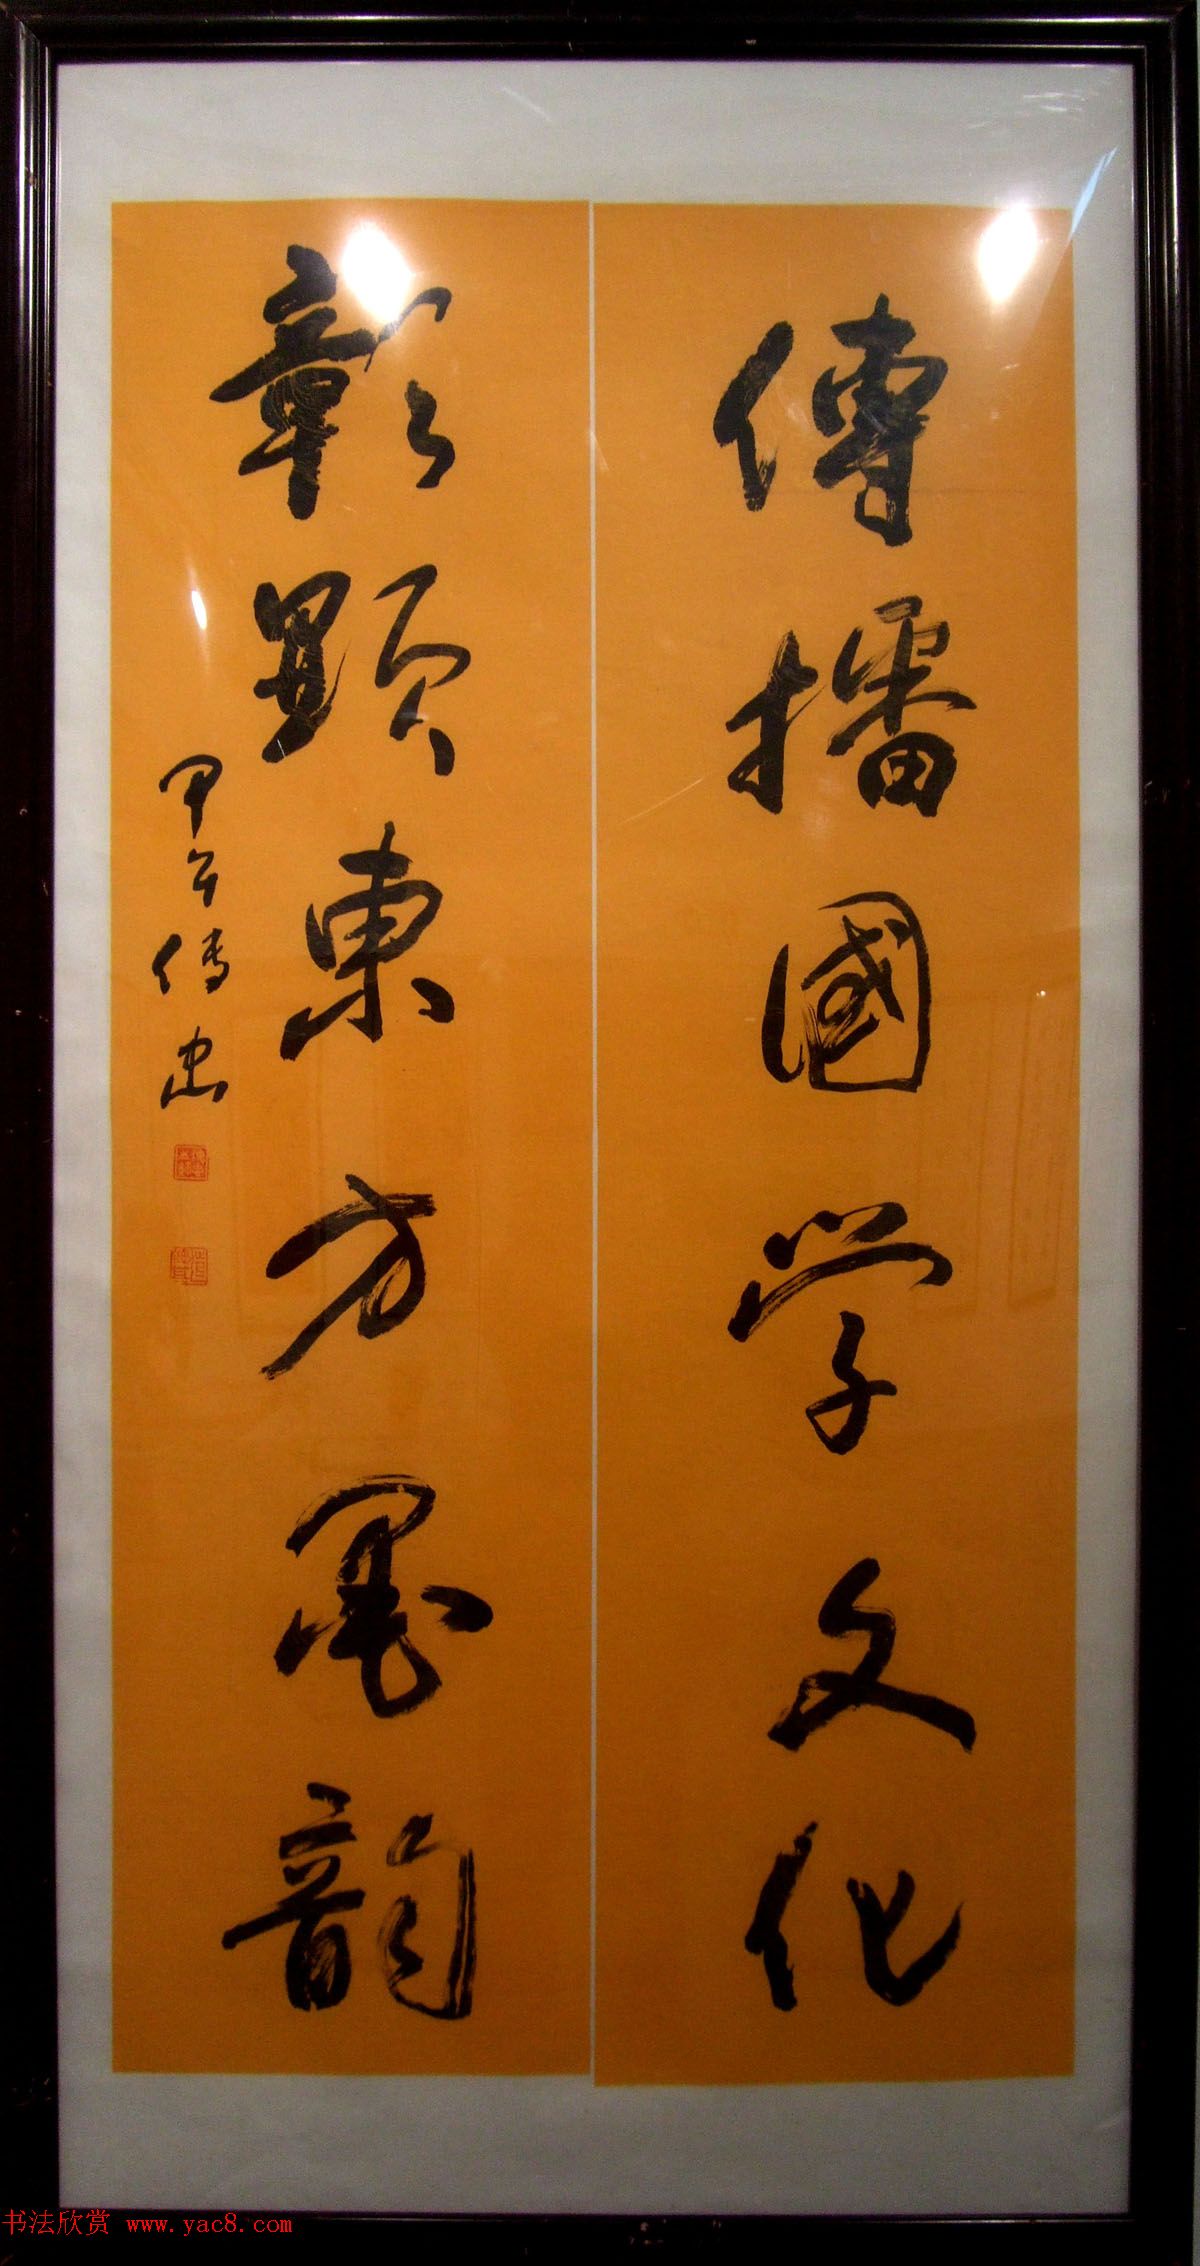 傳播國学文化
彰顯東方墨韵
甲午傳忠
书法欣赏 www.yac8.com